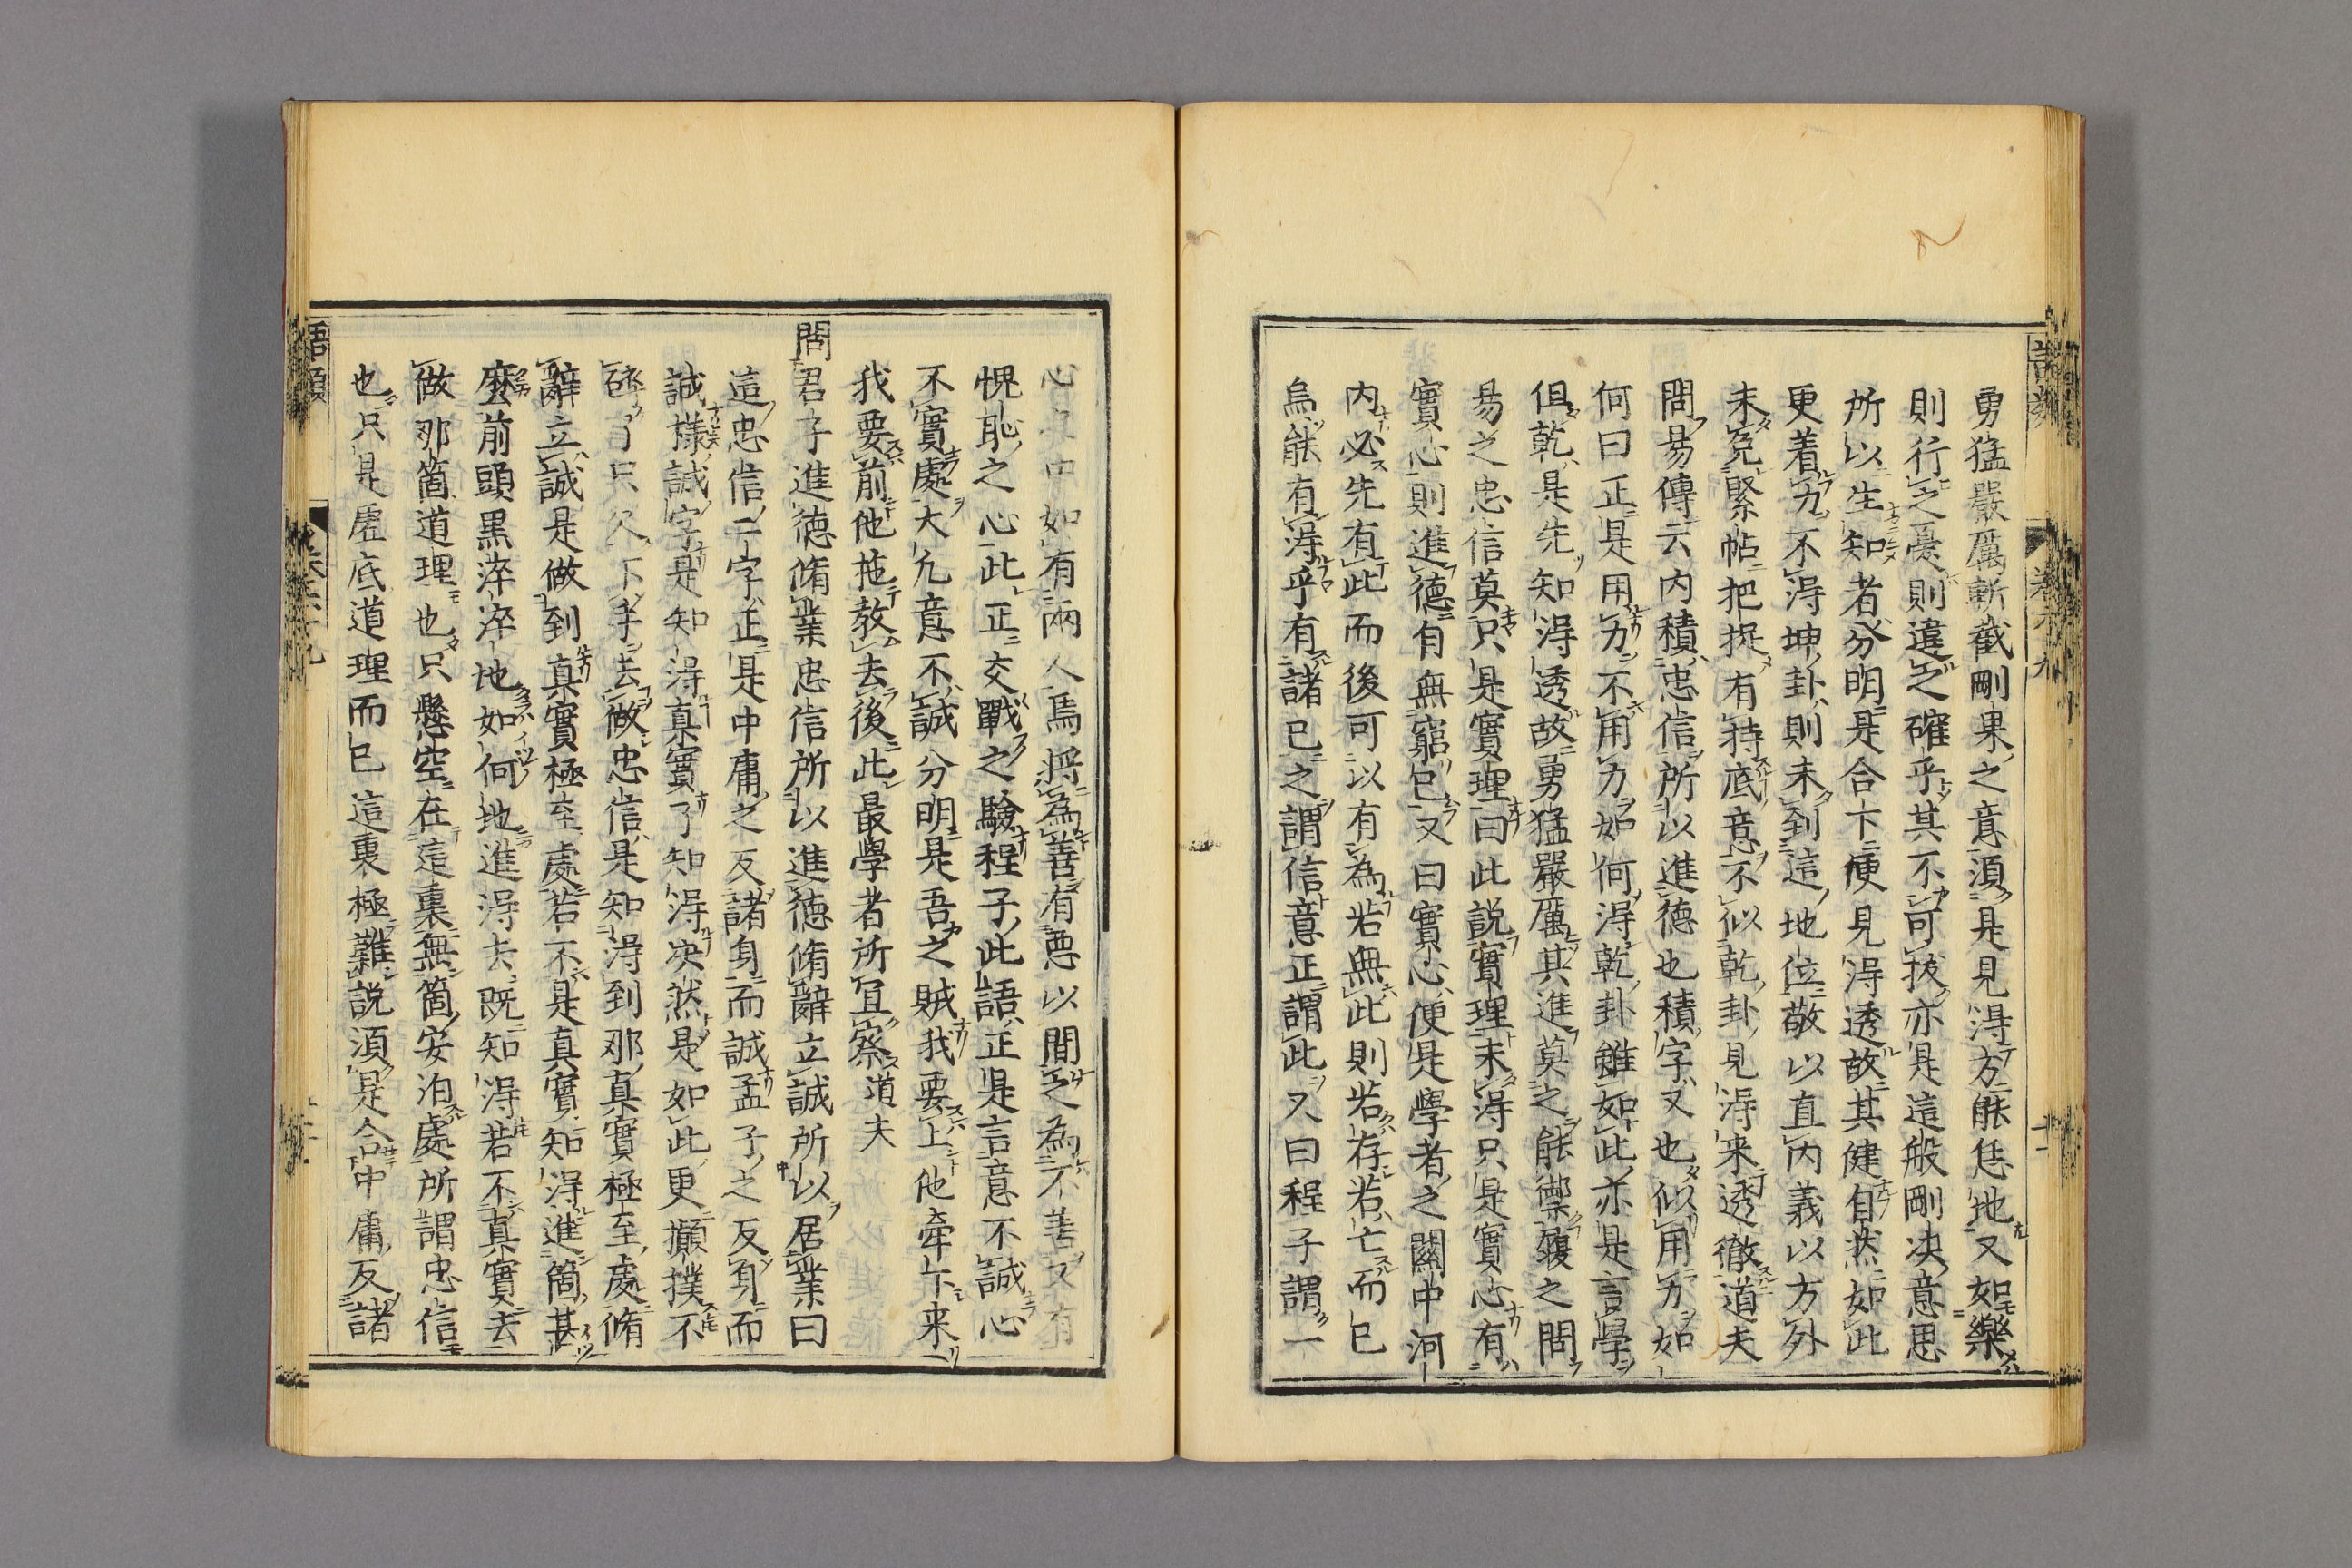 勇猛嚴厲斬截剛果之意須是見得方能恁地又如樂
則行之憂則違之確乎其不可拔亦是這般剛决意思
所以生知者分明是合下便見得透故其健自然如此
更着力不得坤卦則未到這地位敬以直内義以方外
未免緊帖把捉有持底意不似乾卦見得来透徹道夫
問易傳云内積忠信所以進德也積字又也似用力如
何曰正是用力不用力如何得乾卦雖如此亦是言學
但乾是先知得透故勇猛嚴厲其進莫之能禦履之問
易之忠信莫只是實理曰此説實理未得只是實心有
實心則進德自無窮已又曰實心便是學者之關中河
内必先有此而後可以有為若無此則若存若亡而已
烏能有得乎有諸已之謂信意正謂此又曰程子謂一
心之中如有兩人焉将為善有惡以間之為不善又有
愧恥之心此正交戰之驗程子此語正是言意不誠心
不實處大凢意不誠分明是吾之賊我要上他牽下来
我要前他拖教去後此最學者所冝察道夫
問君子進德脩業忠信所以進德脩辭立誠所以居業曰
這忠信二字正是中庸之反諸身而誠孟子之反身而
誠様誠字是知得真實了知得决然是如此更攧撲不
破了只欠下手去做忠信是知得到那真實極至處脩
辭立誠是做到真實極至處若不是真實知得進箇甚
麼前頭黒淬淬地如何地進得去既知得若不真實去
做那箇道理也只懸空在這裏無箇安泊處所謂忠信
也只是虚底道理而已這裏極難説須是合中庸反諸
語類